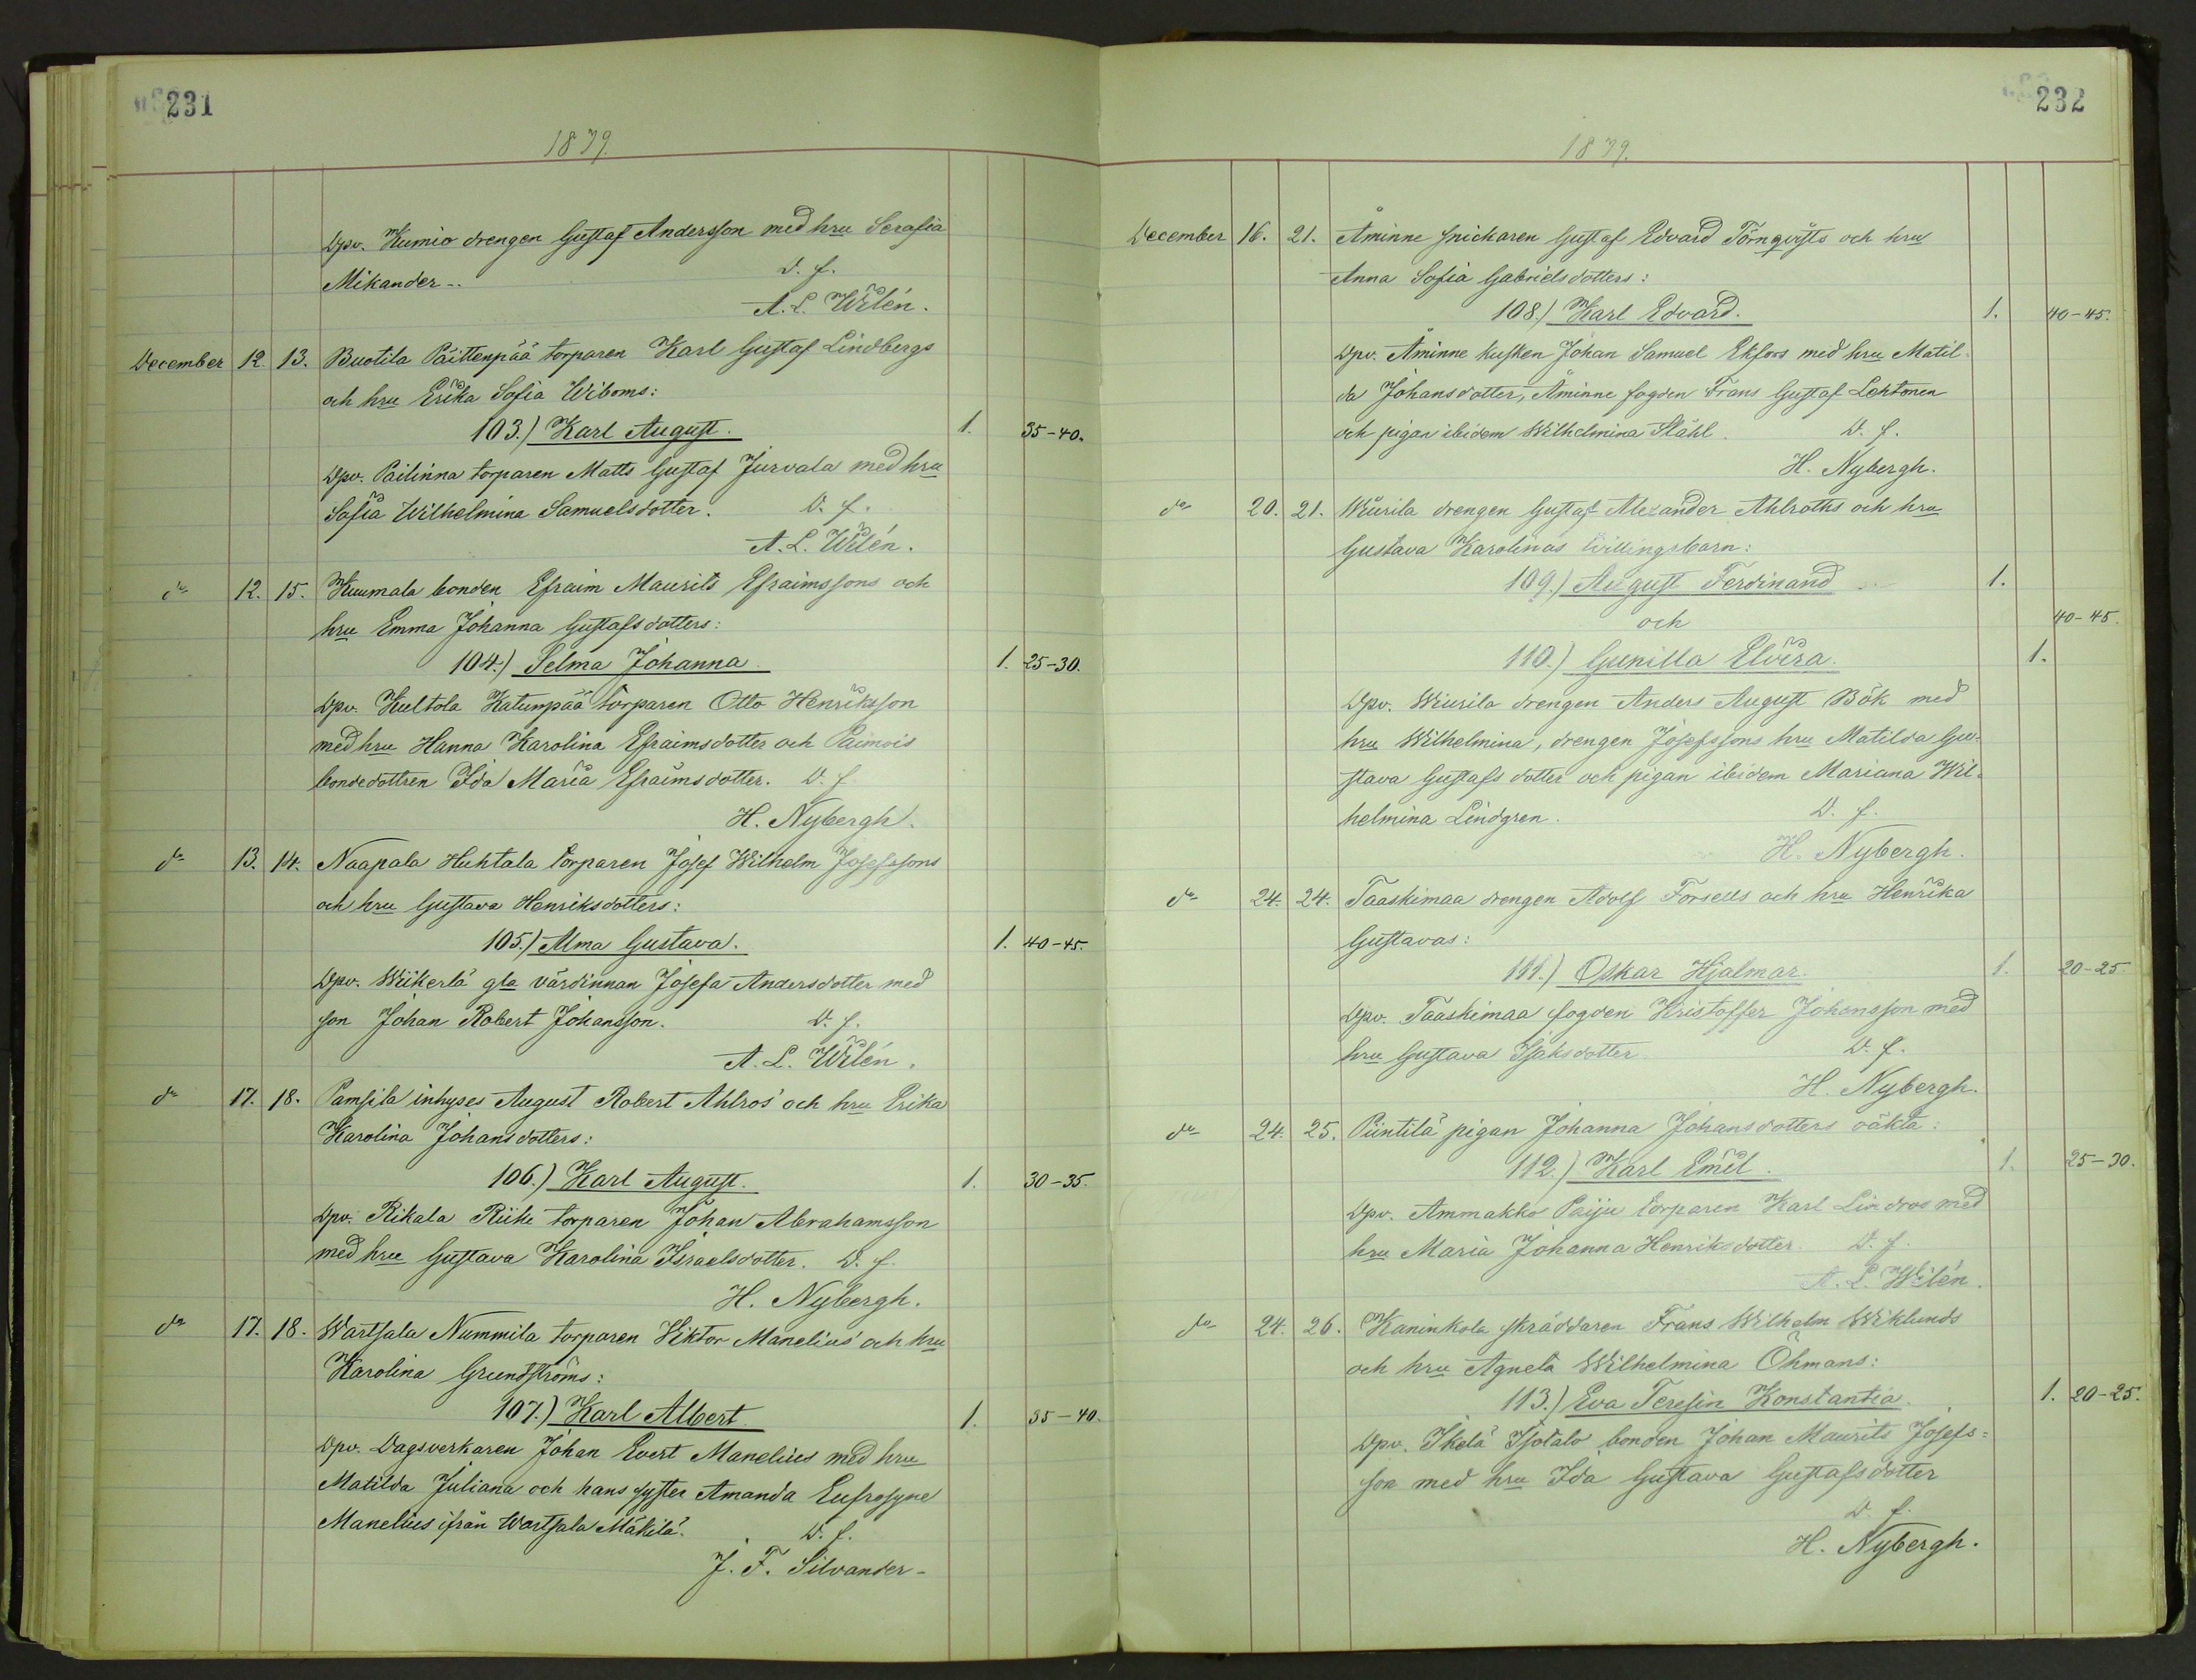 231
1879.
Dpv. Kumio drengen Gustaf Andersson med hru Serafia
Mikander.. D. f.
A. L. Wilén.
December 12. 13. Buotila Päittenpää torparen Karl Gustaf Lindbergs
och hru Erika Sofia Wiboms:
103.) Karl August. 1. 35-40.
Dpv. Pailinna torparen Matts Gustaf Jurvala med hru
Sofia Wilhelmina Samuelsdotter. D. f.
A. L. Wilén.
do 12. 15. Kuumala bonden Efraim Maurits Efraimssons och
hru Emma Johanna Gustafsdotters:
104.) Selma Johanna. 1. 25-30.
Dpv. Kultola Katunpää torparen Otto Henriksson
med hru Hanna Karolina Efraimsdotter och Paimois
bondedottren Ida Maria Efraimsdotter. D. f.
H. Nybergh.
do 13. 14. Naapala Huhtala torparen Josef Wilhelm Josefssons
och hru Gustava Henriksdotters:
105.) Alma Gustava. 1. 40-45.
Dpv. Wiikerlä gla värdinnan Josefa Andersdotter med
son Johan Robert Johansson. D. f.
A. L. Wilén.
do 17. 18. Pamsila inhyses August Robert Ahlros' och hru Erika
Karolina Johansdotters:
106.) Karl August. 1. 30-35.
Dpv. Rikala Riihi torparen Johan Abrahamsson
med hru Gustava Karolina Israelsdotter. D. f.
H. Nybergh.
do 17. 18. Wartsala Nummila torparen Viktor Manelius' och hru
Karolina Grundströms:
107.) Karl Albert 1. 35-40.
Dpv. Dagsverkaren Johan Evert Manelius med hru
Matilda Juliana och hans syster Amanda Eufrosyne
Manelius ifrån Wartsala Mäkilä. D. f.
J. F. Silvander-
232
1879.
December 16. 21. Åminne snickaren Gustaf Edvard Törnqvists och hru
Anna Sofia Gabrielsdotters:
108.) Karl Edvard. 1. 40-45.
Dpv. Åminne kusken Johan Samuel Ekfors med hru Matil-
da Johansdotter, Åminne fogden Frans Gustaf Lehtonen
och pigan ibidem Wilhelmina Ståhl. D. f.
H. Nybergh.
do 20. 21. Wiurila drengen Gustaf Alexander Ahlroths och hru
Gustava Karolinas tvillingsbarn:
109.) August Ferdinand 1.
och 40-45.
110.) Gunilla Elvira. 1.
Dpv. Wiurila drengen Anders August Bök med
hru Wilhelmina, drengen Josefssons hru Matilda Gu-
stava Gustafsdotter och pigan ibidem Mariana Wil-
helmina Lindgren. D. f.
H. Nybergh.
do 24. 24. Taaskimaa drengen Adolf Forsells och hru Henrika
Gustavas:
111.) Oskar Hjalmar. 1. 20-25.
Dpv. Taaskimaa fogden Kristoffer Johansson med
hru Gustava Isaksdotter D. f.
H. Nybergh.
do 24. 25. Piintilä pigan Johanna Johansdotters oäkta:
112.) Karl Emil. 1. 25-30.
Dpv. Ammakko Paiju torparen Karl Lindroos med
hru Maria Johanna Henriksdotter. D. f.
A. L. Wilén.
do 24. 26. Kaninkola skräddaren Frans Wilhelm Wiklunds
och hru Agneta Wilhelmina Öhmans:
113.) Eva Teresin Konstantia. 1. 20-25.
Dpv. Ikelä Isotalo bonden Johan Maurits Josefs=
son med hru Ida Gustava Gustafsdotter
D. f.
H. Nybergh.